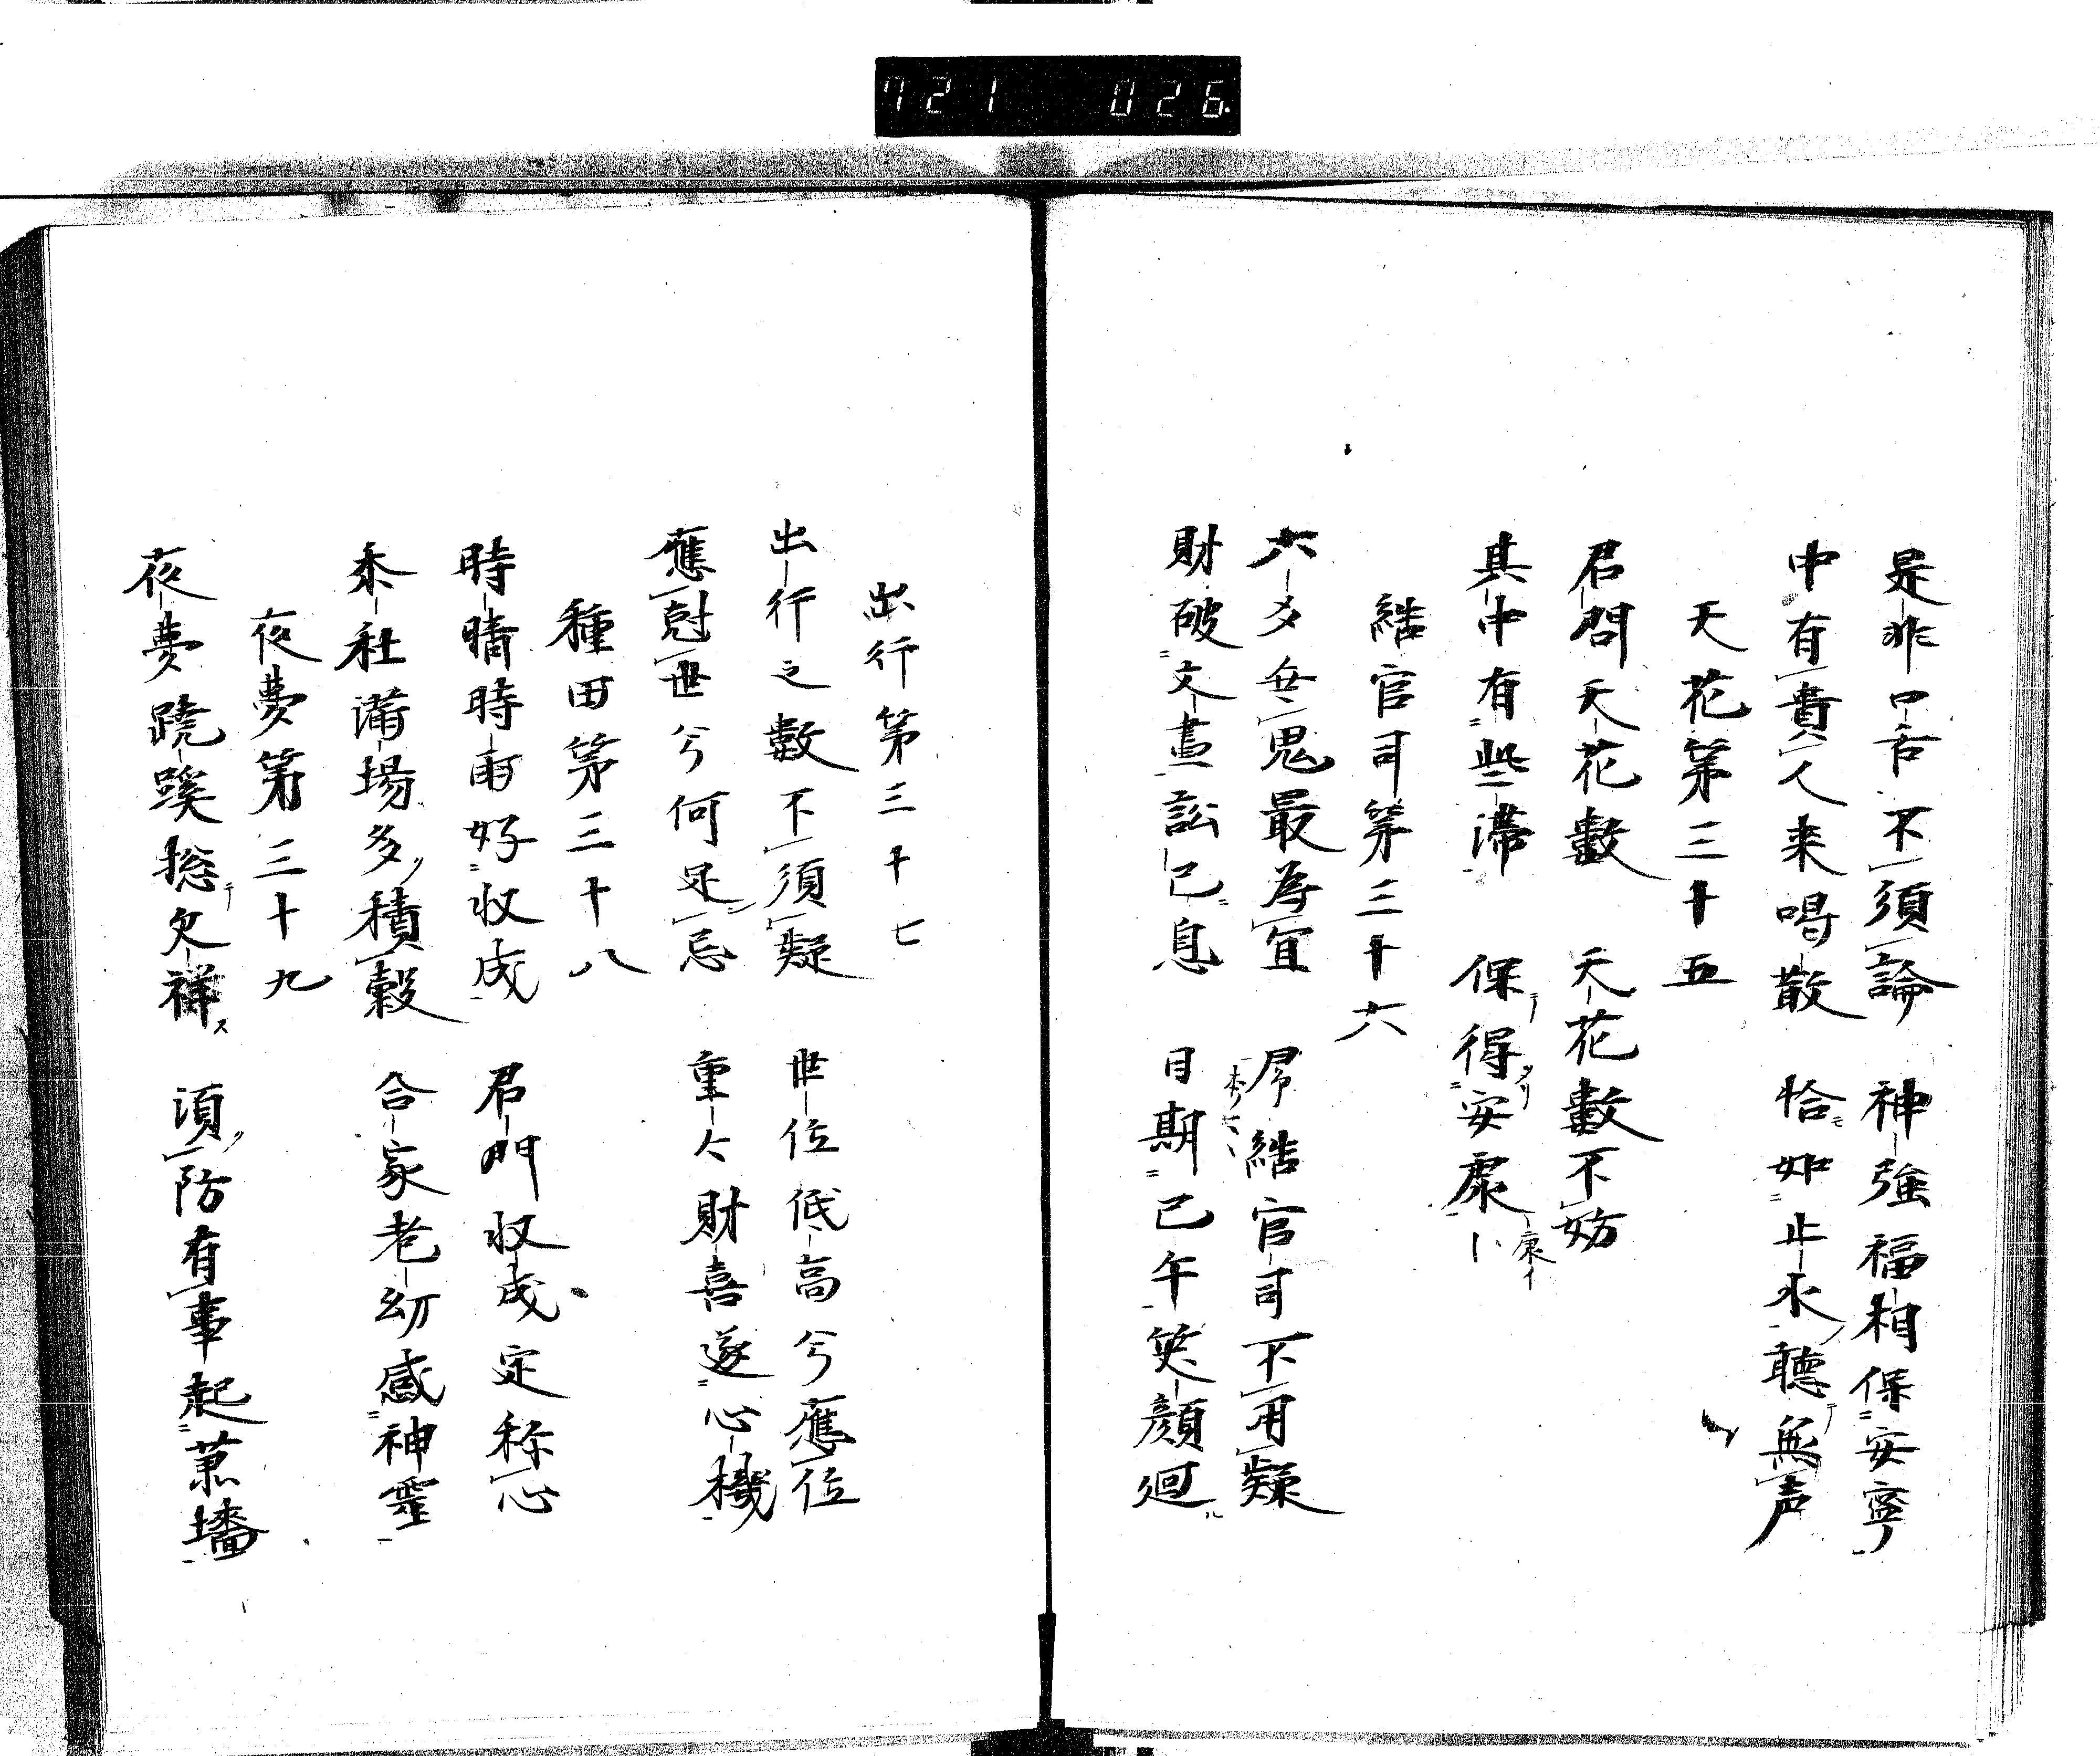 721 026
是非口舌不須論 神強福相保安寧
中有貴人来喝散 恰如止水聴無声
天花第三十五
君問天花數 天花數不妨
其中有些滞 保得安衆 康イ
結官司第三十六
六多無鬼最為宜 結官司不用疑
財破文書訟已息 目期已午笑顔廻
出行第三十七
出行之數不須疑 世位低高兮應位
應尅世兮何足忌 重々財喜遂心機
種田第三十八
時晴時雨好収成 君門収成定称心
黍社満場多積穀 合家老幼感神霊
夜夢第三十九
夜夢蹺蹊揔欠祥 須防有事起蕭墻